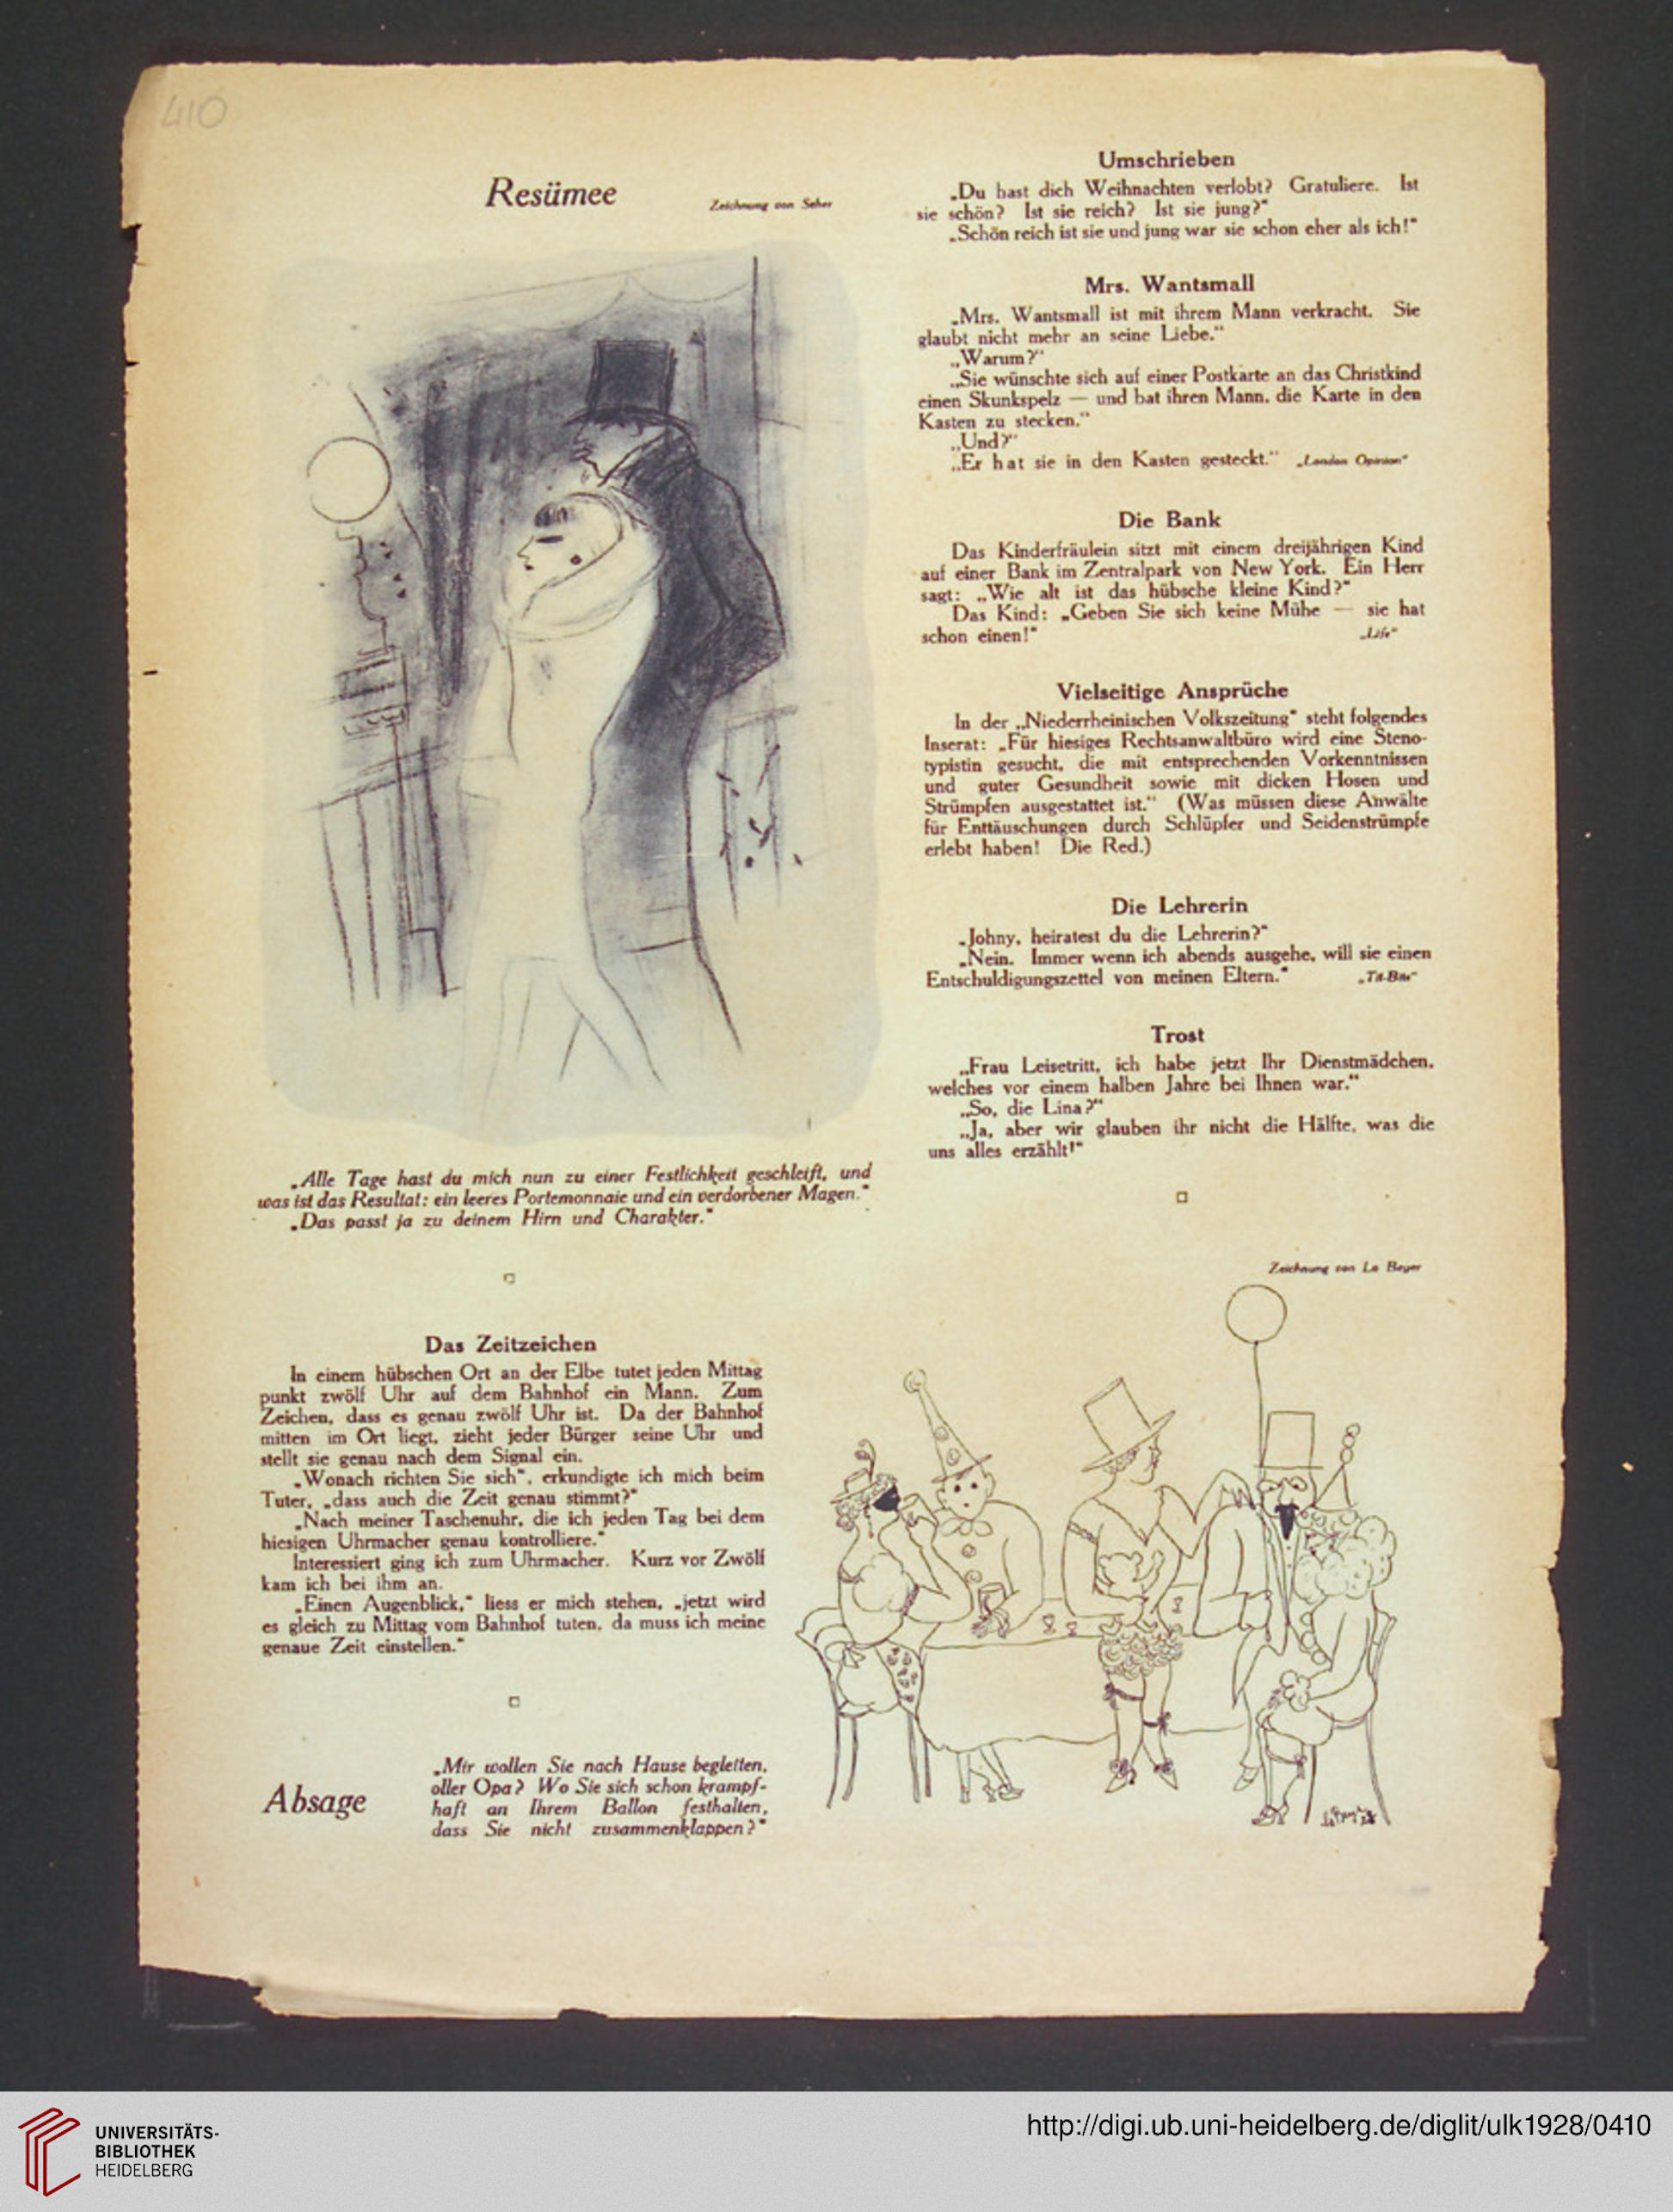 410
Resümee
Zeichnung von Seher
„Alle Tage hast du mich nun zu einer Festlichkeit geschleift, und
was ist das Resultat: ein leeres Portemonnaie und ein verdorbener Magen."
„Das passt ja zu deinem Hirn und Charakter."
Das Zeitzeichen
In einem hübschen Ort an der Elbe tutet jeden Mittag
punkt zwölf Uhr auf dem Bahnhof ein Mann. Zum
Zeichen, dass es genau zwölf Uhr ist. Da der Bahnhof
mitten im Ort liegt, zieht jeder Bürger seine Uhr und
stellt sie genau nach dem Signal ein.
„Wonach richten Sie sich", erkundigte ich mich beim
Tuter, „dass auch die Zeit genau stimmt?"
„Nach meiner Taschenuhr, die ich jeden Tag bei dem
hiesigen Uhrmacher genau kontrolliere."
Interessiert ging ich zum Uhrmacher. Kurz vor Zwölf
kam ich bei ihm an.
„Einen Augenblick," liess er mich stehen, „jetzt wird
es gleich zu Mittag vom Bahnhof tuten, da muss ich meine
genaue Zeit einstellen."
Absage
„Mir wollen Sie nach Hause begleiten,
oller Opa? Wo Sie sich schon krampf-
haft an Ihrem Ballon festhalten,
dass Sie nicht zusammenklappen?"
Umschrieben
„Du hast dich Weihnachten verlobt? Gratuliere. Ist
sie schön? Ist sie reich? Ist sie jung?"
„Schön reich ist sie und jung war sie schon eher als ich!"
Mrs. Wantsmall
„Mrs. Wantsmall ist mit ihrem Mann verkracht. Sie
glaubt nicht mehr an seine Liebe."
„Warum?"
„Sie wünschte sich auf einer Postkarte an das Christkind
einen Skunkspelz — und bat ihren Mann, die Karte in den
Kasten zu stecken."
„Und?"
„Er hat sie in den Kasten gesteckt." „London Opinion"
Die Bank
Das Kinderfräulein sitzt mit einem dreijährigen Kind
auf einer Bank im Zentralpark von New York. Ein Herr
sagt: „Wie alt ist das hübsche kleine Kind?"
Das Kind: „Geben Sie sich keine Mühe — sie hat
schon einen!" „Life"
Vielseitige Ansprüche
In der „Niederrheinischen Volkszeitung" steht folgendes
Inserat: „Für hiesiges Rechtsanwaltbüro wird eine Steno-
typistin gesucht, die mit entsprechenden Vorkenntnissen
und guter Gesundheit sowie mit dicken Hosen und
Strümpfen ausgestattet ist." (Was müssen diese Anwälte
für Enttäuschungen durch Schlüpfer und Seidenstrümpfe
erlebt haben! Die Red.)
Die Lehrerin
„Johny, heiratest du die Lehrerin?"
„Nein. Immer wenn ich abends ausgehe, will sie einen
Entschuldigungszettel von meinen Eltern." „Tit-Bits"
Trost
„Frau Leisetritt, ich habe jetzt Ihr Dienstmädchen,
welches vor einem halben Jahre bei Ihnen war."
„So, die Lina?"
„Ja, aber wir glauben ihr nicht die Hälfte, was die
uns alles erzählt!"
Zeichnung von Lo Beyer
UNIVERSITÄTS-
BIBLIOTHEK
HEIDELBERG
http://digi.ub.uni-heidelberg.de/diglit/ulk1928/0410